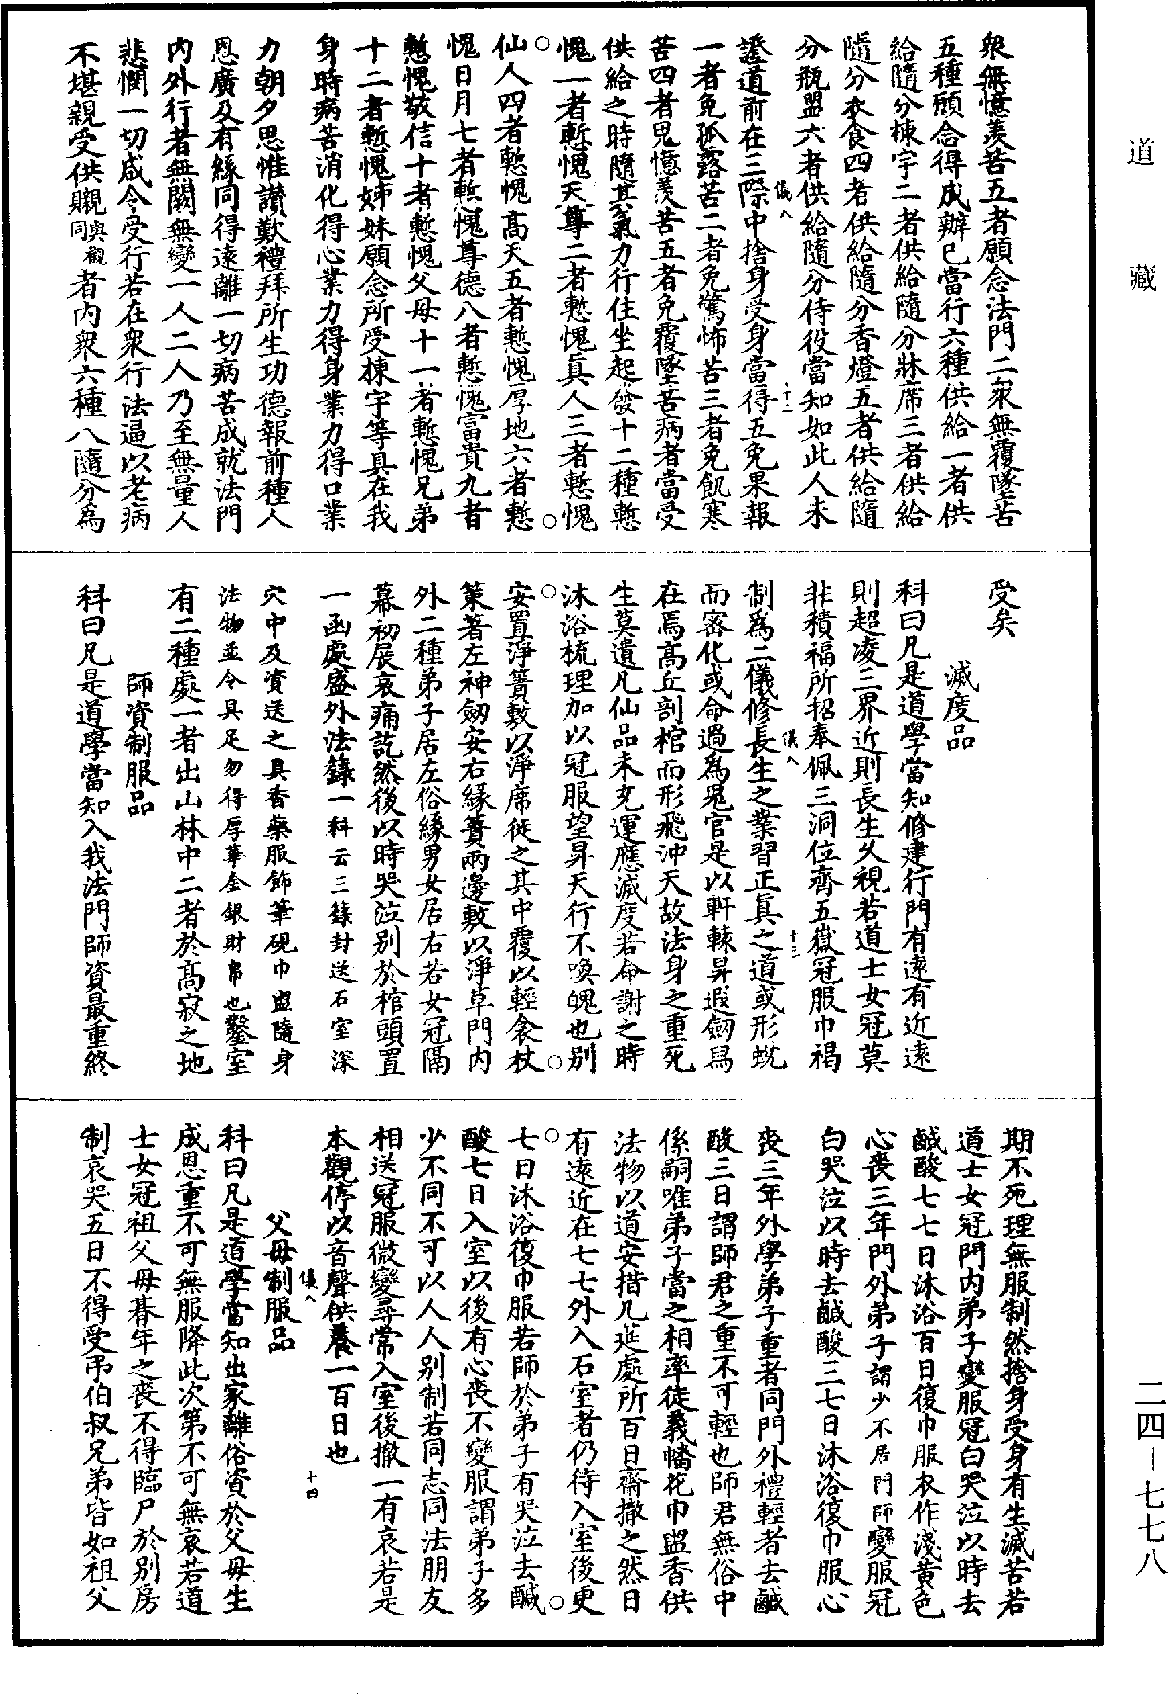 衆無憶羨苦五者願念法門二衆無覆墜苦
五種願念得成辦已當行六種供給一者供
給隨分棟宇二者供給隨分牀席三者供給
隨分衣食四者供給隨分香燈五者供給隨
分瓶盥六者供給隨分侍役當知如此人未
證道前在三際中捨身受身當得五免果報
儀八
十二
一者免孤露苦二者免驚怖苦三者免飢寒
苦四者免憶羨苦五者免覆墜苦病者當受
供給之時隨其氣力行住坐起發十二種慙
愧一者慙愧天尊二者慙愧真人三者慙愧
仙人四者慙愧高天五者慙愧厚地六者慙
愧日月七者慙愧尊德八者慙愧富貴九者
慙愧敬信十者慙愧父母十一者慙愧兄弟
十二者慙愧姊妹願念所受棟宇等具在我
身時病苦消化得心業力得身業力得口業
力朝夕思惟讃歎禮拜所生功德報前種人
恩廣及有緣同得遠離一切病苦成就法門
內外行者無闕無變一人二人乃至無量人
悲憫一切咸令受行若在衆行法逼以老病
不堪親受供䞋與櫬同者內衆六種八隨分爲
受矣
滅度品
科曰凡是道學當知修建行門有遠有近遠
則超凌三界近則長生久視若道士女冠莫
非積福所招奉佩三洞位齊五嶽冠服巾褐
儀八
十三
制爲二儀修長生之業習正真之道或形蛻
而窸化或命過爲鬼官是以軒轅昇遐劒舄
在焉高丘剖棺而形飛沖天故法身之重死
生莫遺凡仙品未充運應滅度若命謝之時
沐浴梳理加以冠服望昇天行不喚魄也別
安置淨簀敷以淨席徙之其中覆以輕衾杖
策著左神劒安右緣簀兩邊敷以淨草門內
外二種弟子居左俗緣男女居右若女冠隔
幕初展哀痛訖然後以時哭泣別於棺頭置
一函處盛外法籙一科云三籙封送石室深
穴中及資送之具香藥服飾筆硯巾盥隨身
法物並令具足勿得厚華金銀財帛也鑿室
有二種處一者出山林中二者於高寂之地
師資制服品
科曰凡是道學當知入我法門師資最重終
期不死理無服制然捨身受身有生滅苦若
道士女冠門內弟子變服冠白哭泣以時去
鹹酸七七日沐浴百日復巾服衣作淺黃色
心喪三年門外弟子謂少不居門師變服冠
白哭泣以時去鹹酸三七日沐浴復巾服心
喪三年外學弟子重者同門外禮輕者去鹹
酸三日謂師君之重不可輕也師君無俗中
係嗣唯弟子當之相率徒義幡花巾盥香供
法物以道安措几筵處所百日齋撤之然日
有遠近在七七外入石室者仍待入室後更
七日沐浴復巾服若師於弟子有哭泣去鹹
酸七日入室以後有心喪不變服謂弟子多
少不同不可以人人別制若同志同法朋友
相送冠服微變尋常入室後撤一有哀若是
本觀停以音聲供養一百日也
儀八
十四
父母制服品
科曰凡是道學當知出家離俗資於父母生
成恩重不可無服降此次第不可無哀若道
士女冠祖父母朞年之喪不得臨尸於別房
制哀哭五日不得受弔伯叔兄弟皆如祖父
道藏
二四—七七八